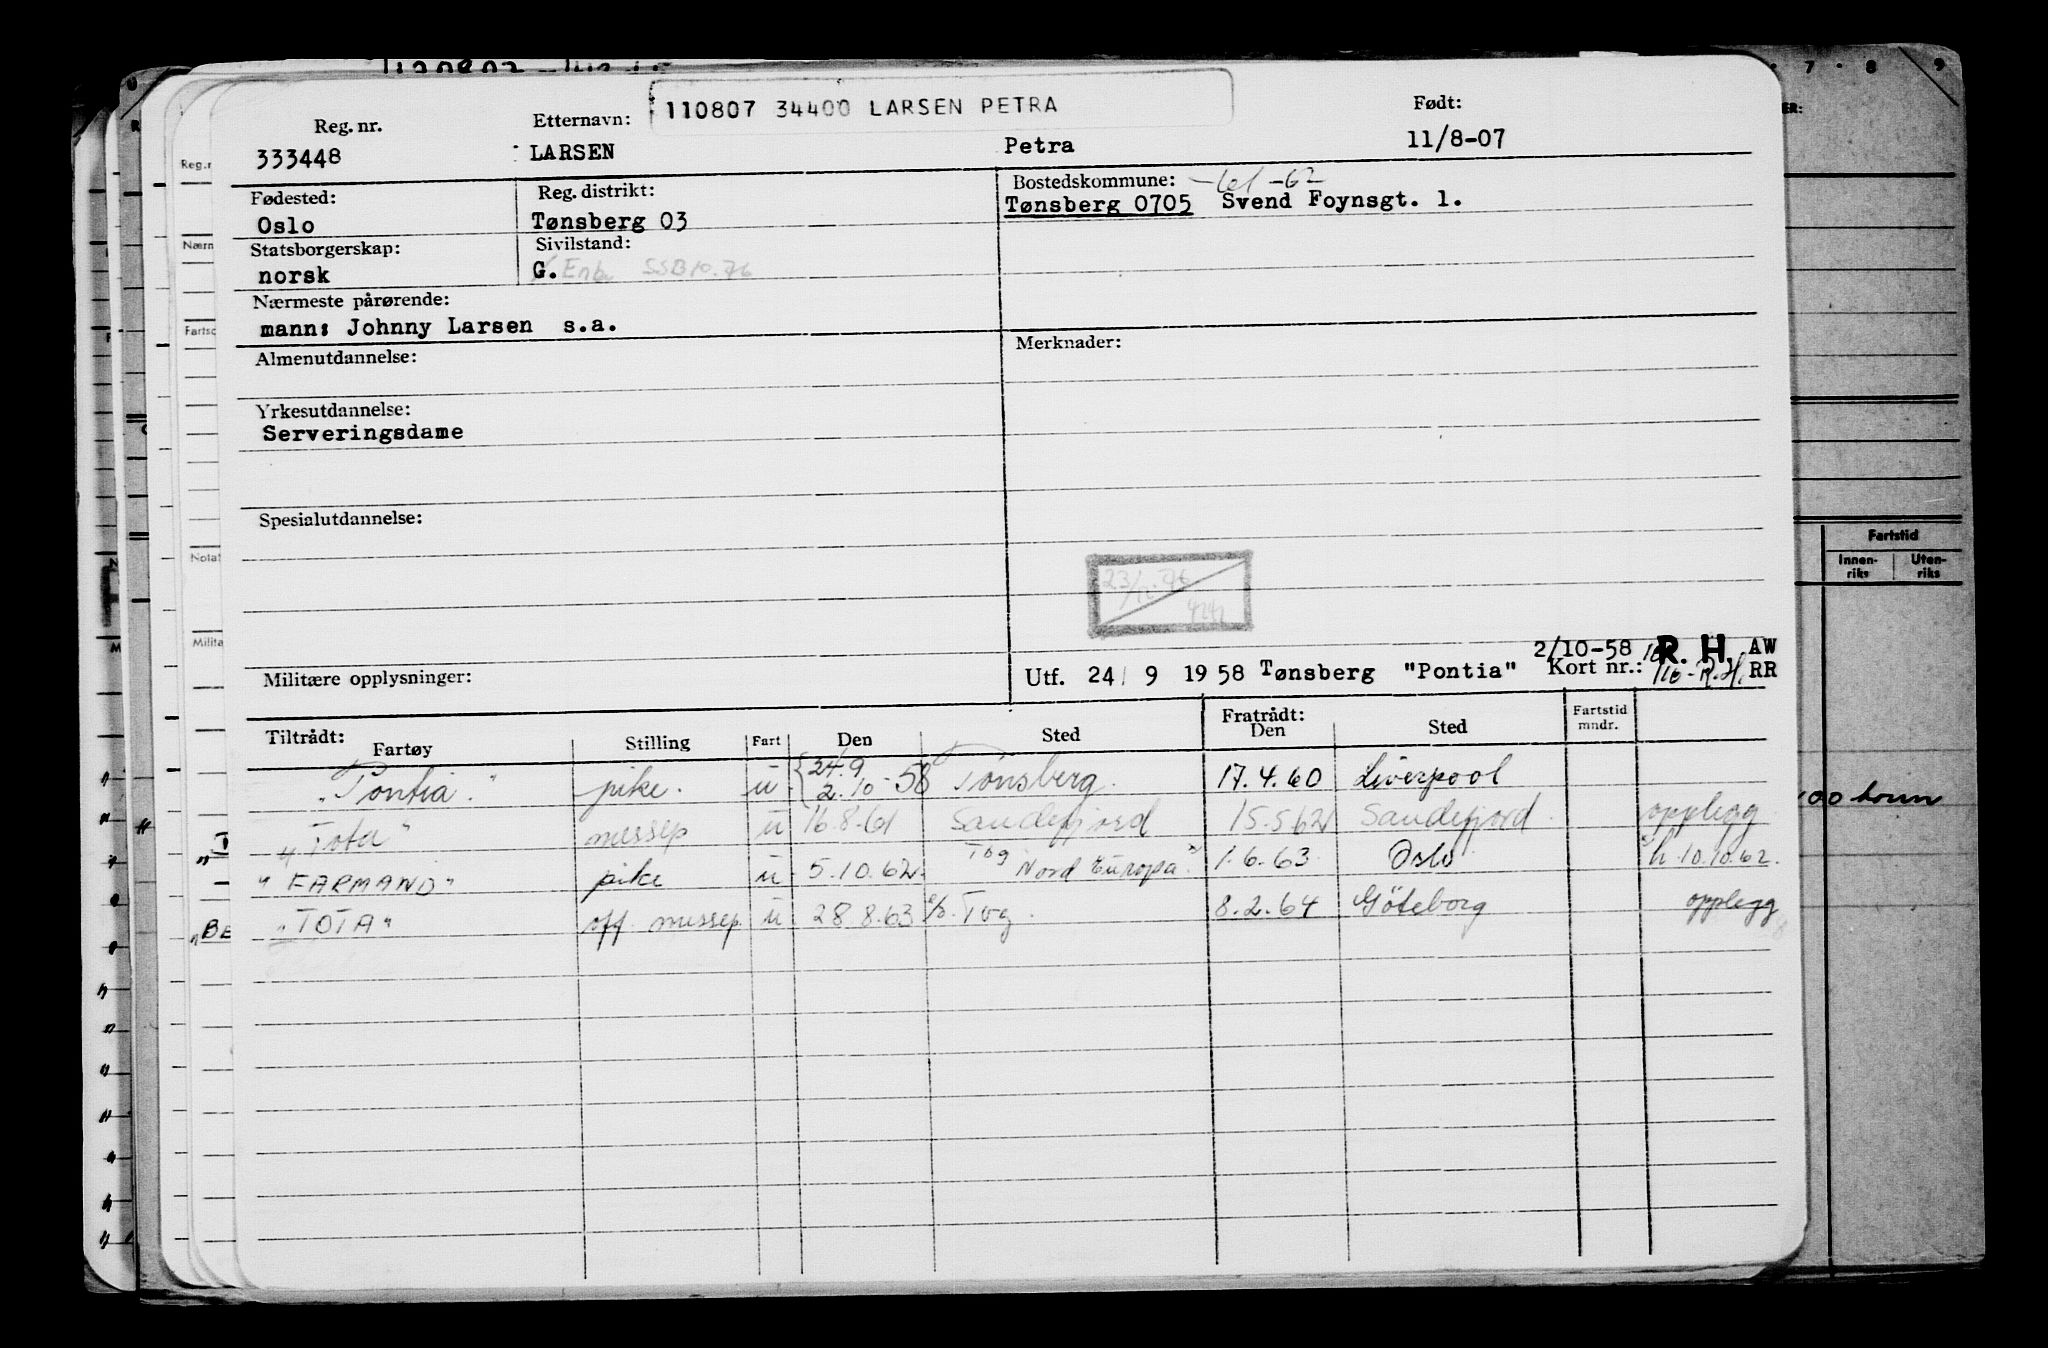 110807 34400 LARSEN PETRA
Reg. nr. Etternavn: Født:
333448 LARSEN Petra 11/8-07
Fødested: Reg. distrikt: Bostedskommune: -61 -62
Oslo Tønsberg 03 Tønsberg 0705 Svend Foynsgt. 1.
Statsborgerskap: Sivilstand:
norsk G. Enke SSB 10.76
Nærmeste pårørende:
mann: Johnny Larsen s.a.
Almenutdannelse: Merknader:
Yrkesutdannelse:
Serveringsdame
Spesialutdannelse:
2/10-58 R. H. AW
Militære opplysninger: Utf. 24/ 9 1958 Tønsberg "Pontia" Kort nr.: R.H. RR
Tiltrådt: Fratrådt: Fartstid
Fartøy Stilling Fart Den Sted Den Sted mndr.
"Pontia" pike. u. {24.9 2.10-58 Tønsberg. 17.4.60 Liverpool
"Tota" messep u 16.8.61 Sandefjord 15.5.62 Sandefjord opplegg
"FARMAND" pike u. 5.10.62. Tog "Nord Europa" 1.6.63. Oslo h. 10.10.62.
"TOTA" off. messep. u. 28.8.63 Tvg. 8.2.64 Göteborg opplegg
Fartstid
Innen-riks Uten-riks